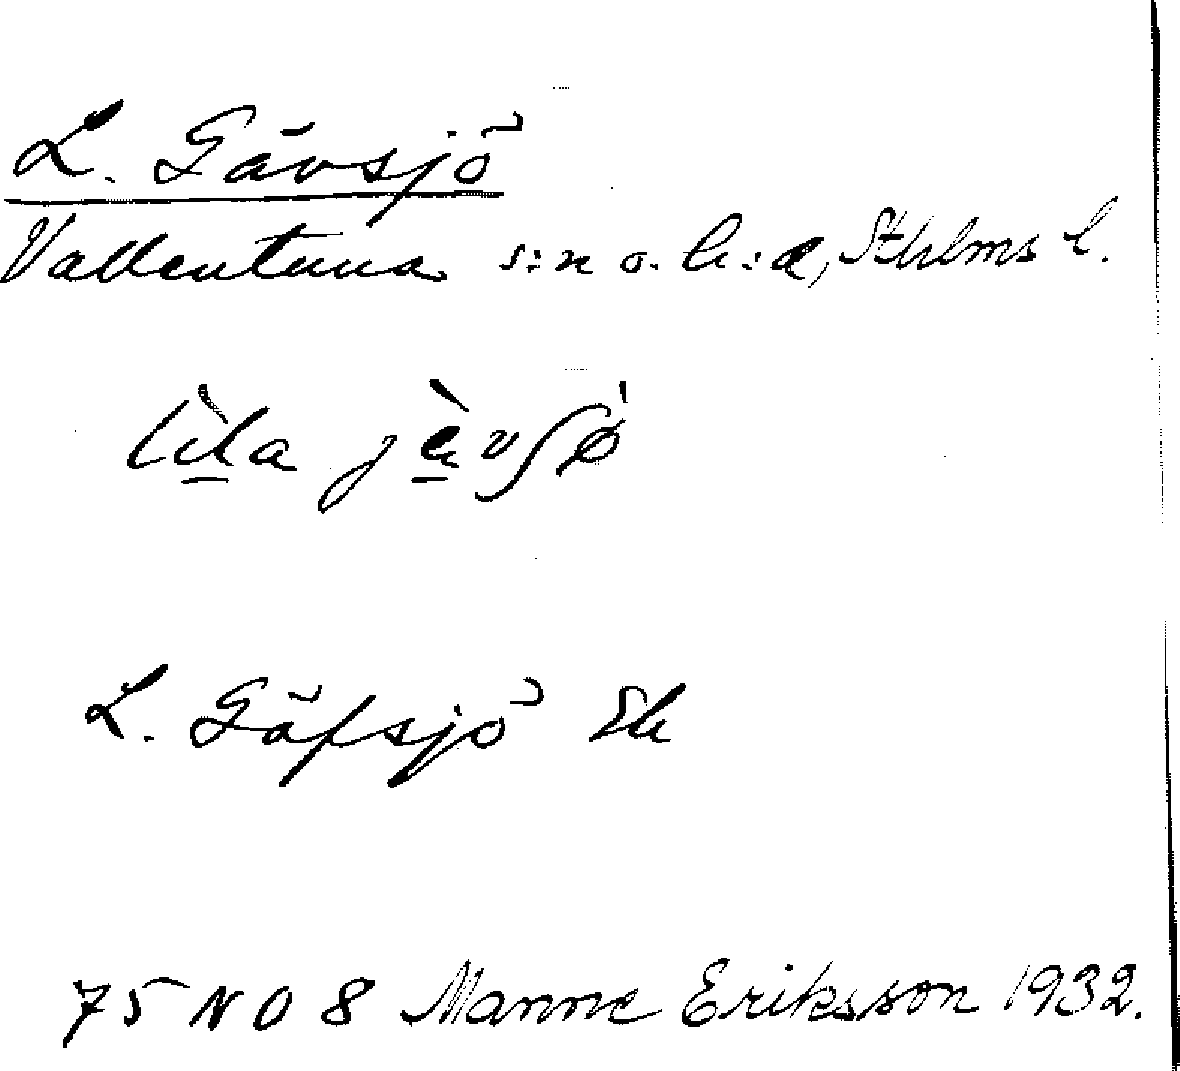 L. Gävsjö
Vallentuna s:n o. h:d, Sthlms l.
L. Gäfsjö Ek
75 NO 8 Manne Eriksson 1932.